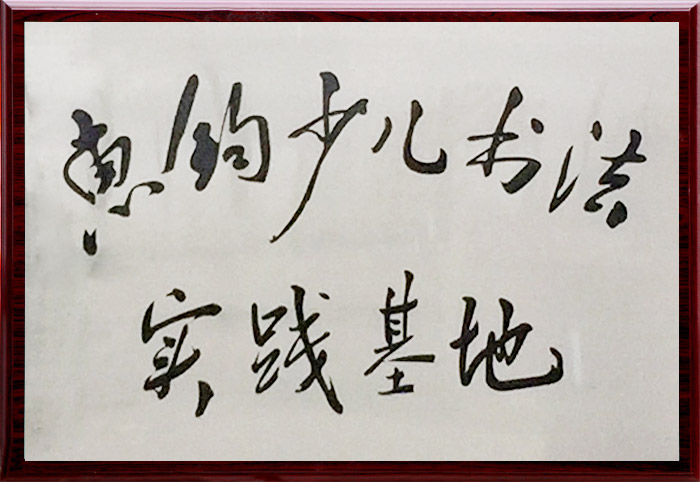 惠钧少儿书法
实践基地